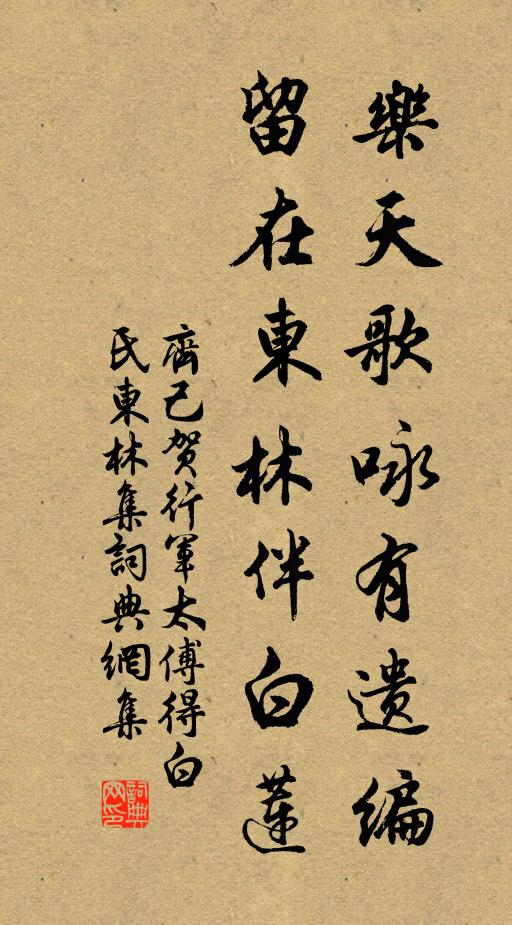 樂天歌咏有遺編
留在東林伴白蓮
齊己賀行軍太傅得白
氏東林集詞典網集
詞典网印